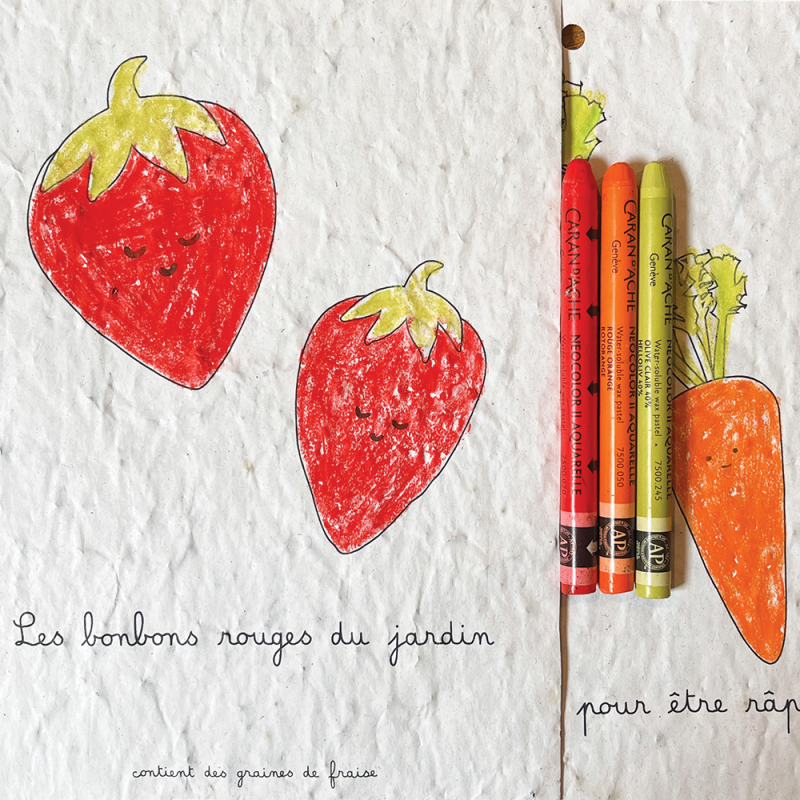 Les bonbons rouges du jardin
contient des graines de fraise
CARAN D'ACHE NEOCOLOR II AQUARELLE
AP
CARAN D'ACHE NEOCOLOR II AQUARELLE
Genève Water-soluble wax pastel 7500.050
ROUGE ORANGE
ROTORANGE
AP
CARAN D'ACHE NEOCOLOR II AQUARELLE
Genève Water-soluble wax pastel 7500.245
OLIVE CLAIR 40%
AP
pour être râp